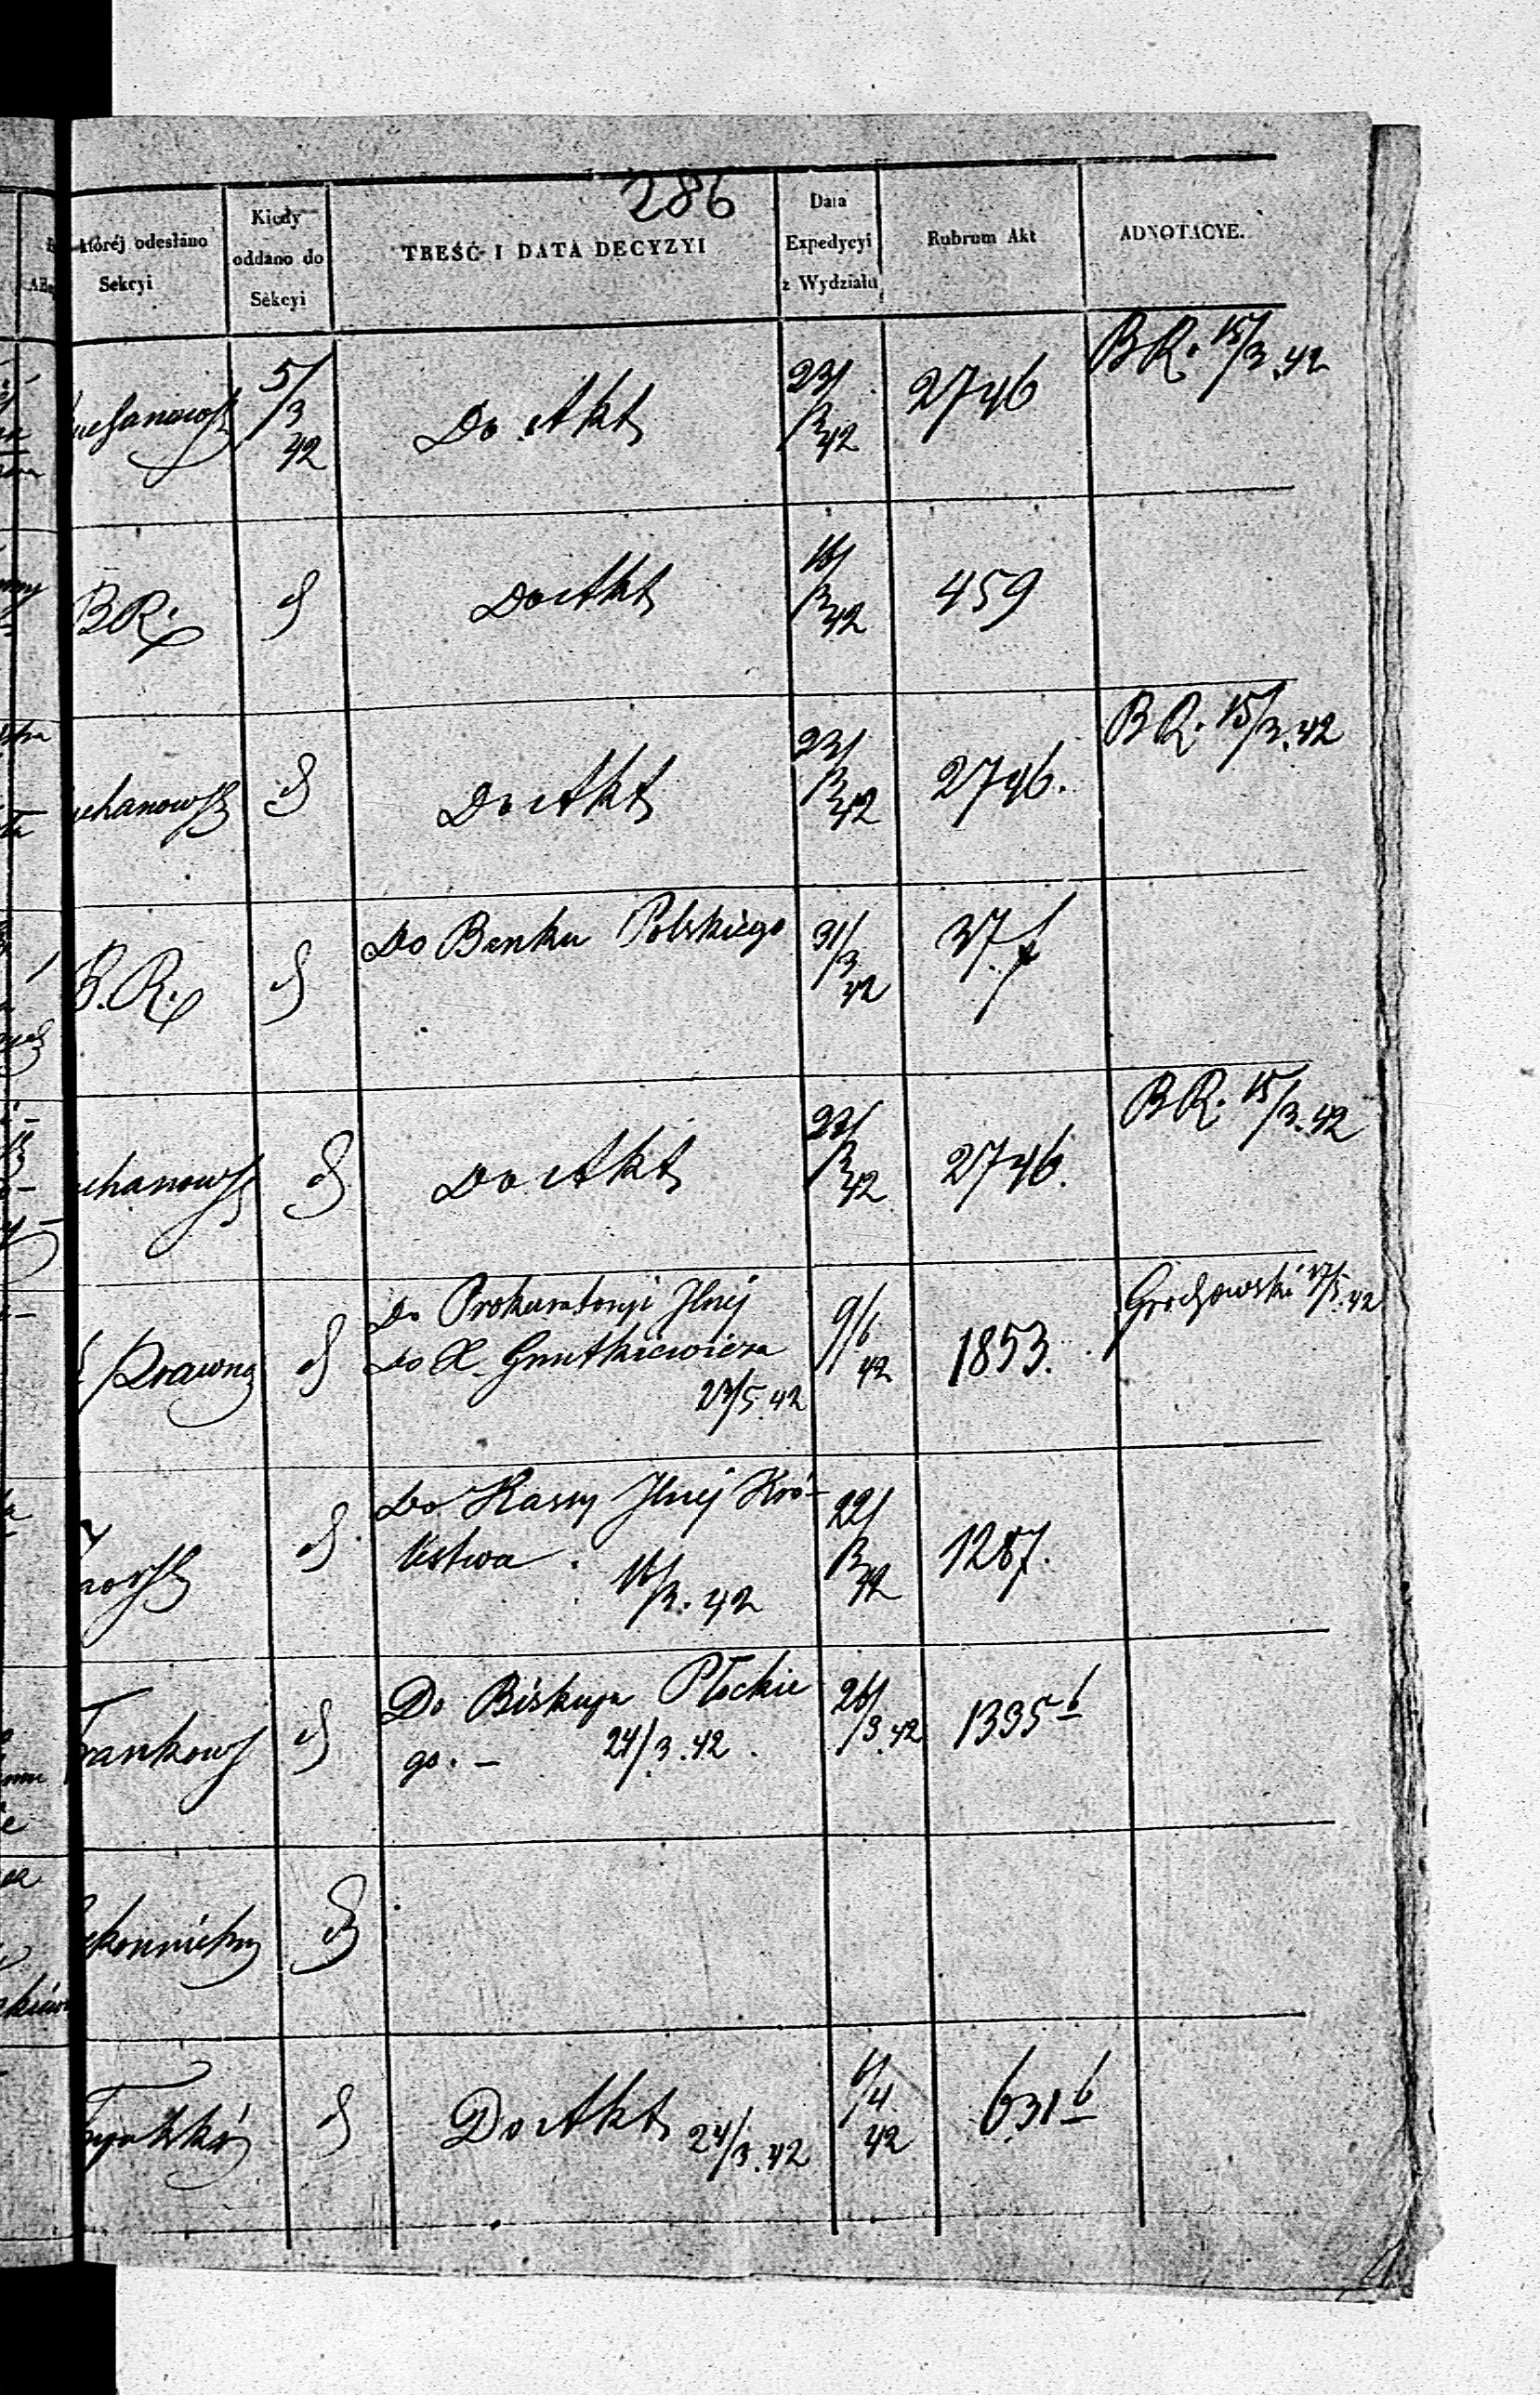 286
któréj odesłano
Sekcyi
Kiedy
oddano do
Sekcyi
TREŚĆ I DATA DECYZYI
Data
Expedycyi
z Wydziału
Rubrum Akt
ADNOTACYE.
5/3 42
Do Akt
23/3 42
2746
BR. 15/3.42
BR.
Do Akt
16/3 42
459
chanows
Do Akt
23/3 42
2746.
BR. 15/3.42
B.R.
Do Banku Polskiego
31/3 42
37 f
chanows
Do Akt
23/3 42
2746.
BR. 15/3.42
Prawna
Do Prokuratoryi Jlnéj
do X. Gmitkiewicza
23/5.42
9/6 42
1853.
Grochowski 17/5.42
Do Kassy Jlnéj Kró-
lestwa.
16/3.42
22/3 42
1287.
Frankows
Do Biskupa Płockie
go. — 24/3.42.
26/3.42
1335 b
Do Akt 24/3.42
6/4 42
631 b